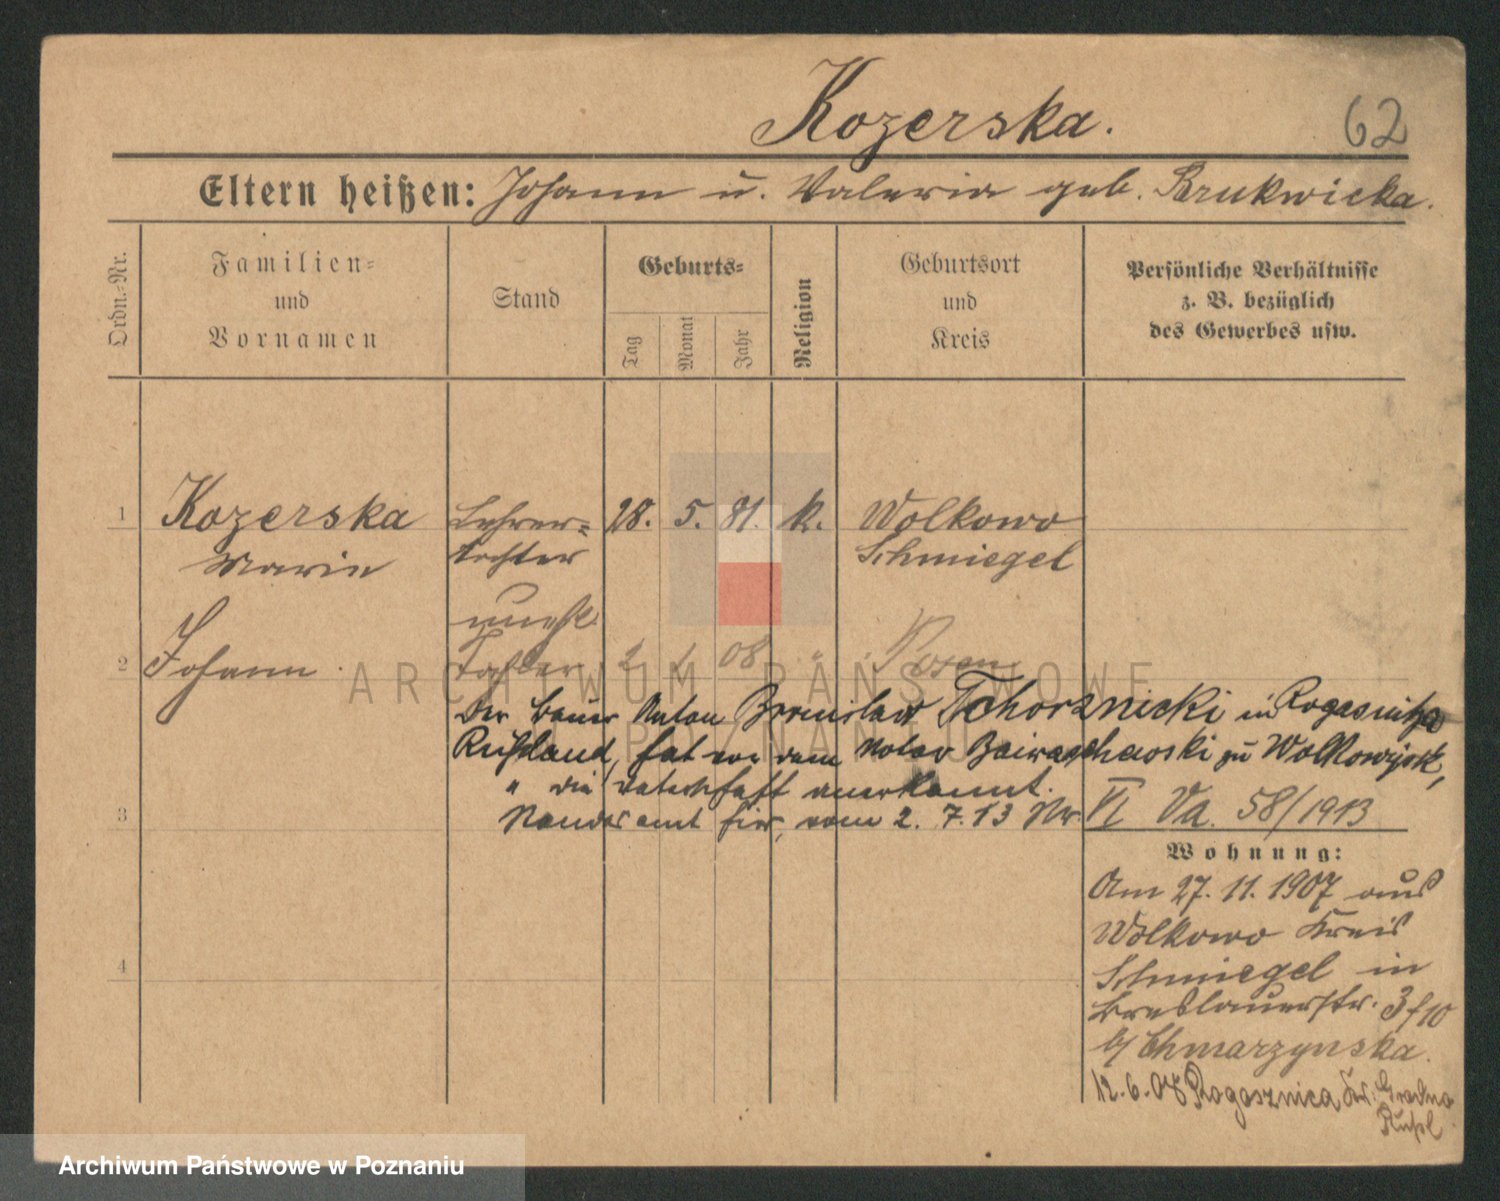 Kozerska.
62
Eltern heißen: Johann u. Valeria geb. Brukwicka.
Ordn.-Nr.
Familien- und Vornamen
Stand
Geburts-
Tag
Monat
Jahr
Religion
Geburtsort und Kreis
Persönliche Verhältnisse
z. B. bezüglich
des Gewerbes usw.
1 Kozerska Lehrer- 28. 5. 81. k. Wolkowo
Marie tochter Schmiegel
unehl.
2 Johann Tochter 2 08 " Posen
Der Bauer Anton Bronislaw Tchorznicki in Rogasnitza
Rußland, hat vor dem Notar zu Wolkowysk,
" die Vaterschaft anerkannt.
Standesamt hier, vom 2. 7. 13 Nr. VI Va. 58/1913
3
Wohnung:
Am 27. 11. 1907 aus
Wolkowo Kreis
4
Schmiegel in
Breslauerstr. 3
b/ Chmarzynska.
12. 6. 08 Rogosznica Kr. Grodno
Rußl
ARCHIWUM PAŃSTWOWE
W POZNANIU
Archiwum Państwowe w Poznaniu